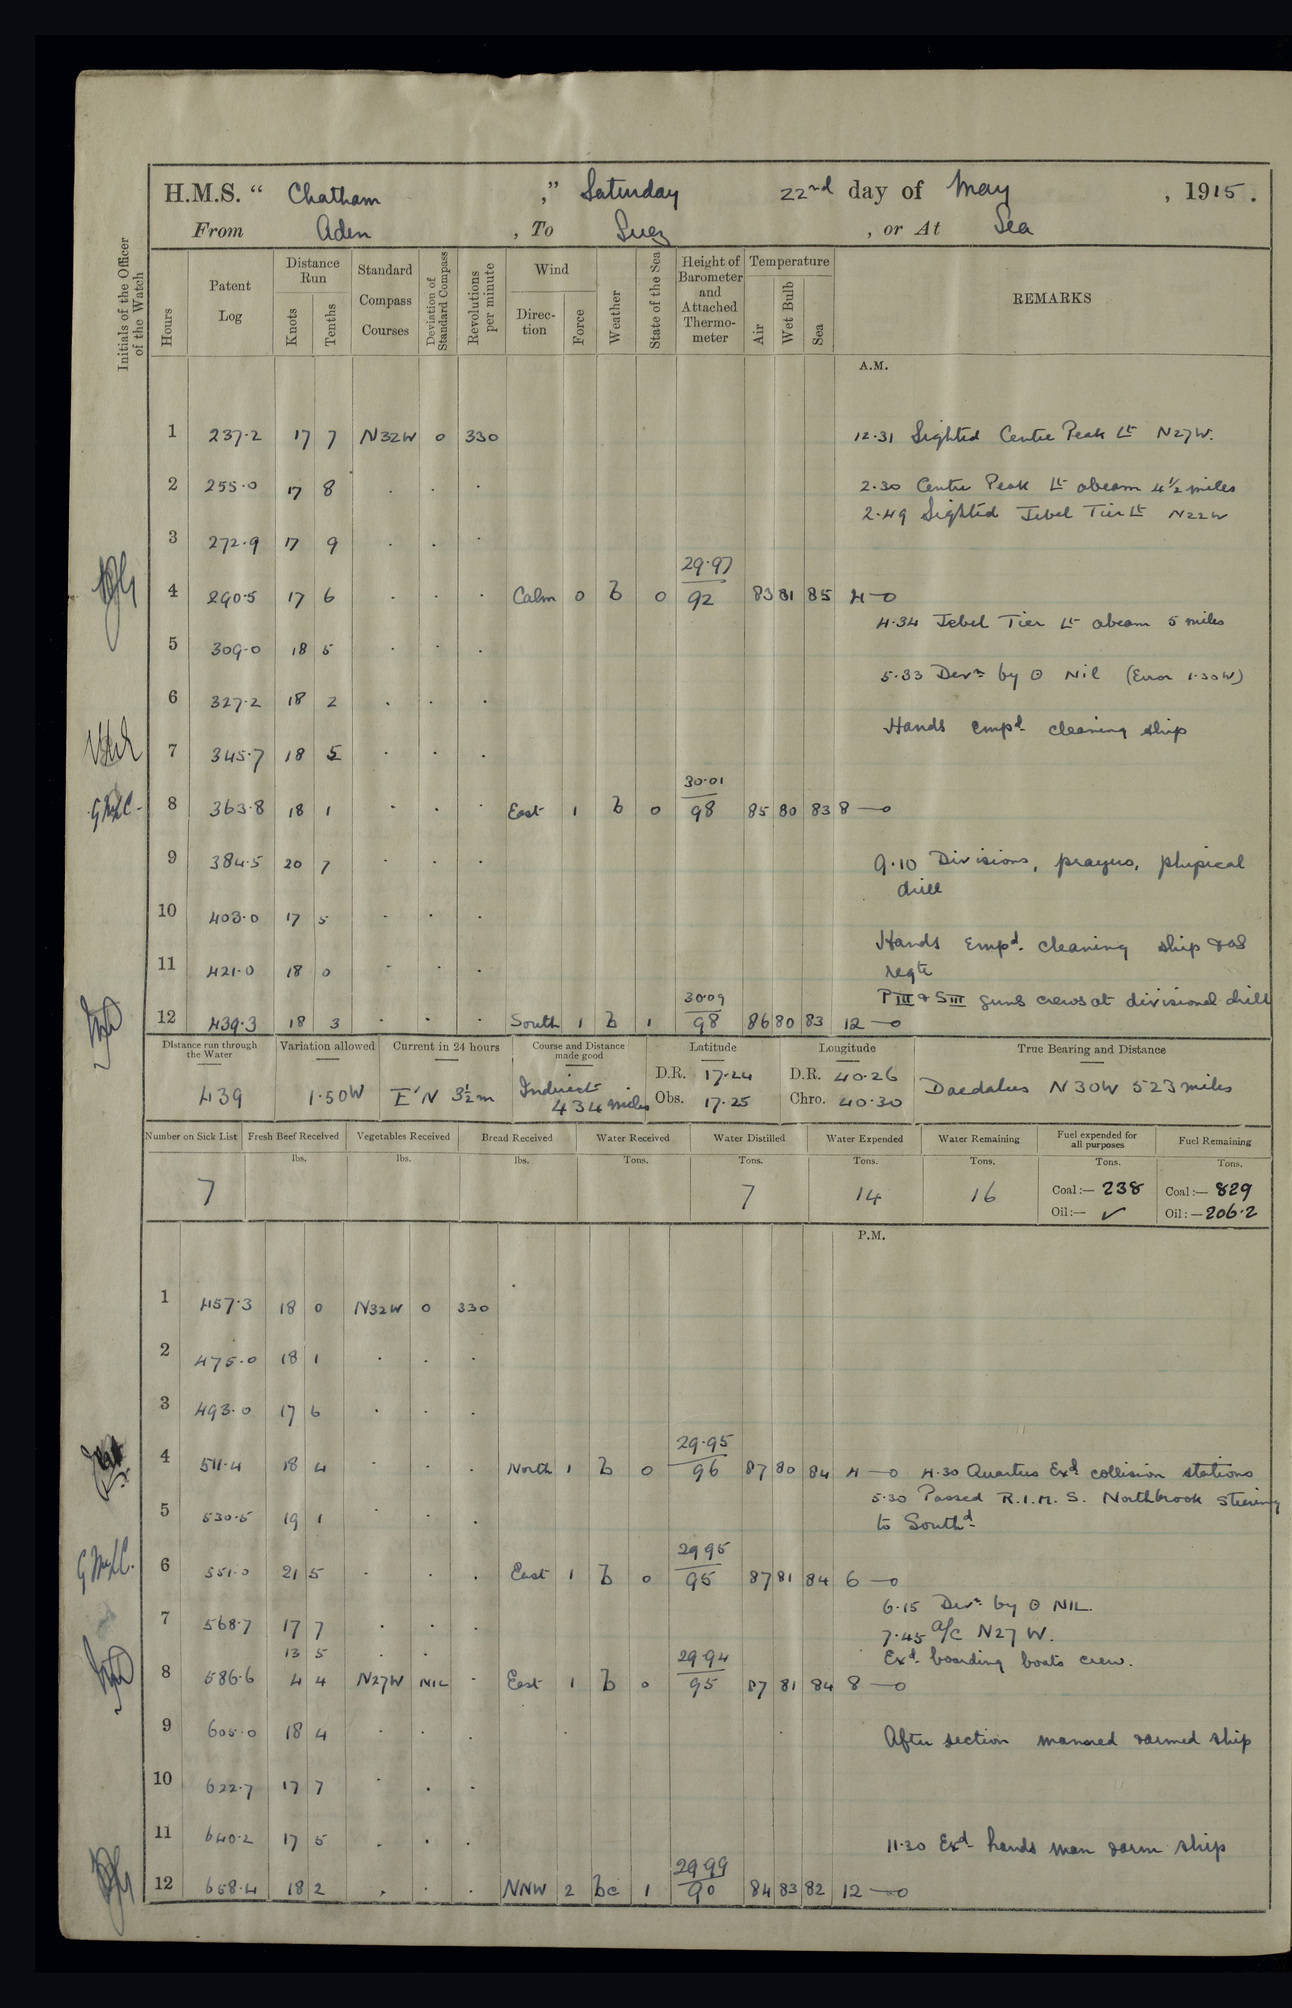 H.M.S. “ Chatham ,” Saturday 22nd day of May , 1915 .
From Aden , To Suez , or At Sea
Initials of the Officer of the Watch
Hours
Patent Log
Distance Run
Knots
Tenths
Standard Compass Courses
Deviation of Standard Compass
Revolutions per minute
Wind
Direc-tion
Force
Weather
State of the Sea
Height of Barometer and Attached Thermo-meter
Temperature
Air
Wet Bulb
Sea
REMARKS
A.M.
1 237.2 17 7 N32W 0 330 12.31 Sighted Centre Peak Lt N27W.
2 255.0 17 8 . . . 2.30 Centre Peak Lt abeam 4½ miles
2.49 Sighted Jebel Tier Lt N22W
3 272.9 17 9 . . .
29.97
4 290.5 17 6 . . . Calm 0 b 0 92 83 81 85 4—0
4.34 Jebel Tier Lt abeam 5 miles
5 309.0 18 5 . . .
5.33 Devn by ⊙ Nil (Error 1.30W)
6 327.2 18 2 . . .
Hands empd cleaning ship
7 345.7 18 5 . . .
30.01
8 363.8 18 1 . . . East 1 b 0 98 85 80 83 8—0
9 384.5 20 7 . . . 9.10 Divisions, prayers, phipical
drill
10 403.0 17 5 . . .
Hands Empd cleaning ship & as
11 421.0 18 0 . . . reqte
P III & S III guns crews at divisional drill
30.09
12 439.3 18 3 . . . South 1 b 1 98 86 80 83 12—0
Distance run through the Water Variation allowed Current in 24 hours Course and Distance made good Latitude Longitude True Bearing and Distance
D.R. 17.24 D.R. 40.26
439 1.50W E'N 3½m Indirect 434 miles Daedalus N30W 523 miles
Obs. 17.25 Chro. 40.30
Number on Sick List Fresh Beef Received Vegetables Received Bread Received Water Received Water Distilled Water Expended Water Remaining Fuel expended for all purposes Fuel Remaining
lbs. lbs. lbs. Tons. Tons. Tons. Tons. Tons. Tons.
7 7 14 16 Coal:— 238 Coal:— 829
Oil:— ✓ Oil:— 206.2
P.M.
1 457.3 18 0 N32W 0 330
2 475.0 18 1 . . .
3 493.0 17 6 . . .
29.95
4 511.4 18 4 . . . North 1 b 0 96 87 80 84 4—0 4.30 Quarters Exd collision stations
5.30 Passed R.I.M.S. Northbrook steering
5 530.5 19 1 . . . to Southd
29 95
6 551.0 21 5 . . . East 1 b 0 95 87 81 84 6—0
6.15 Devn by ⊙ NIL.
7 568.7 17 7 . . . 7.45 a/c N27W.
13 5 . . Exd boarding boats crew.
29.94
8 586.6 4 4 N27W NIL - East 1 b 0 95 87 81 84 8—0
9 605.0 18 4 . . . After section manned & armed ship
10 622.7 17 7 . . .
11 640.2 17 5 . . . 11.30 Exd hands man & arm ship
29 99
12 658.4 18 2 . . . NNW 2 bc 1 90 84 83 82 12—0